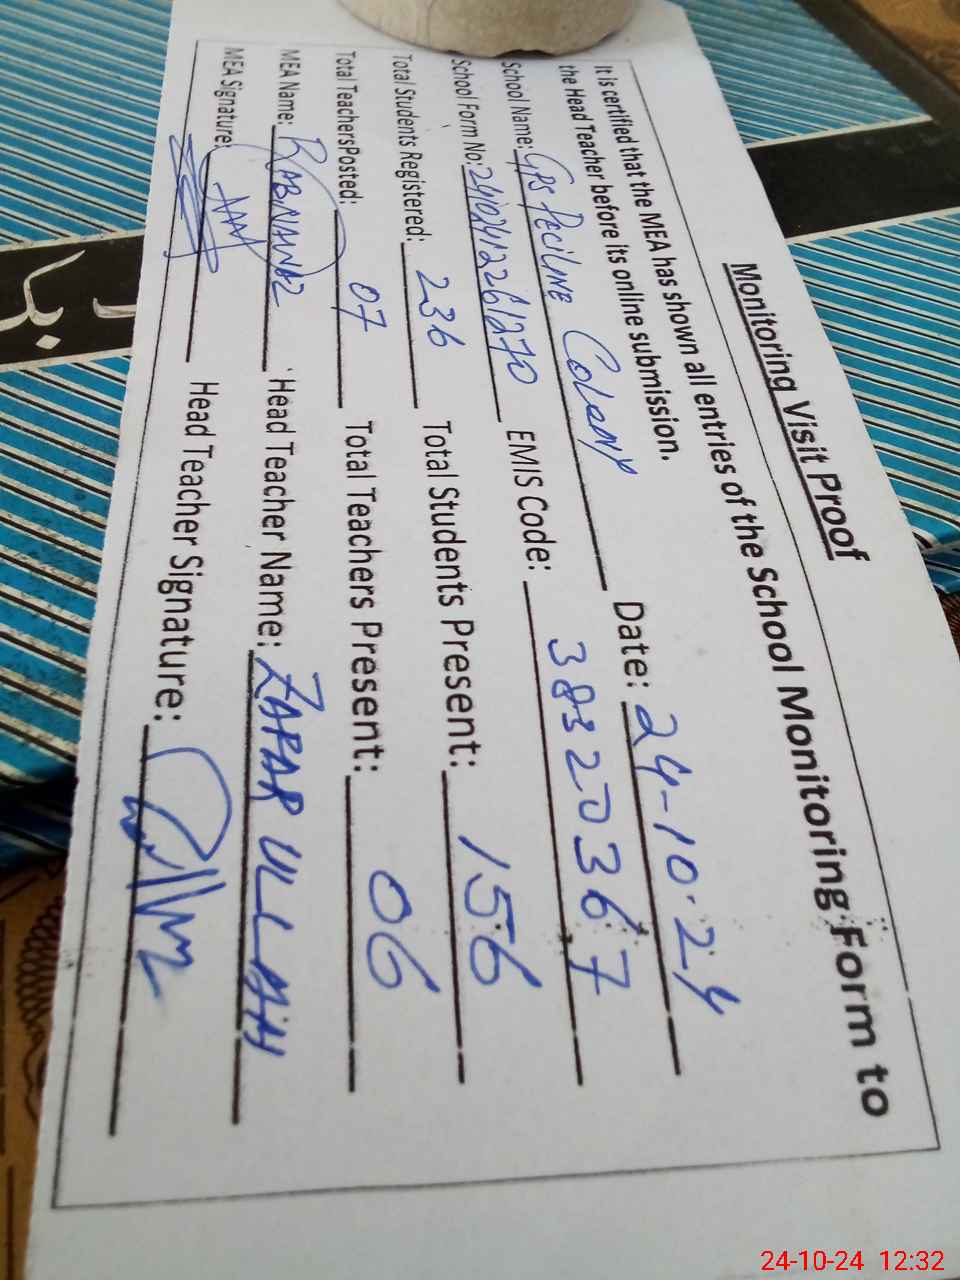 Monitoring Visit Proof
It is certified that the MEA has shown all entries of the School Monitoring Form to
the Head Teacher before its online submission.
School Name: GPS Colony Date: 24-10-24
School Form No: EMIS Code: 38320367
Total Students Registered: 236 Total Students Present: 156
Total TeachersPosted: 07 Total Teachers Present: 06
MEA Name: RABNAWAZ Head Teacher Name: ZAFAR ULLAH
MEA Signature: Head Teacher Signature:
بک
24-10-24 12:32